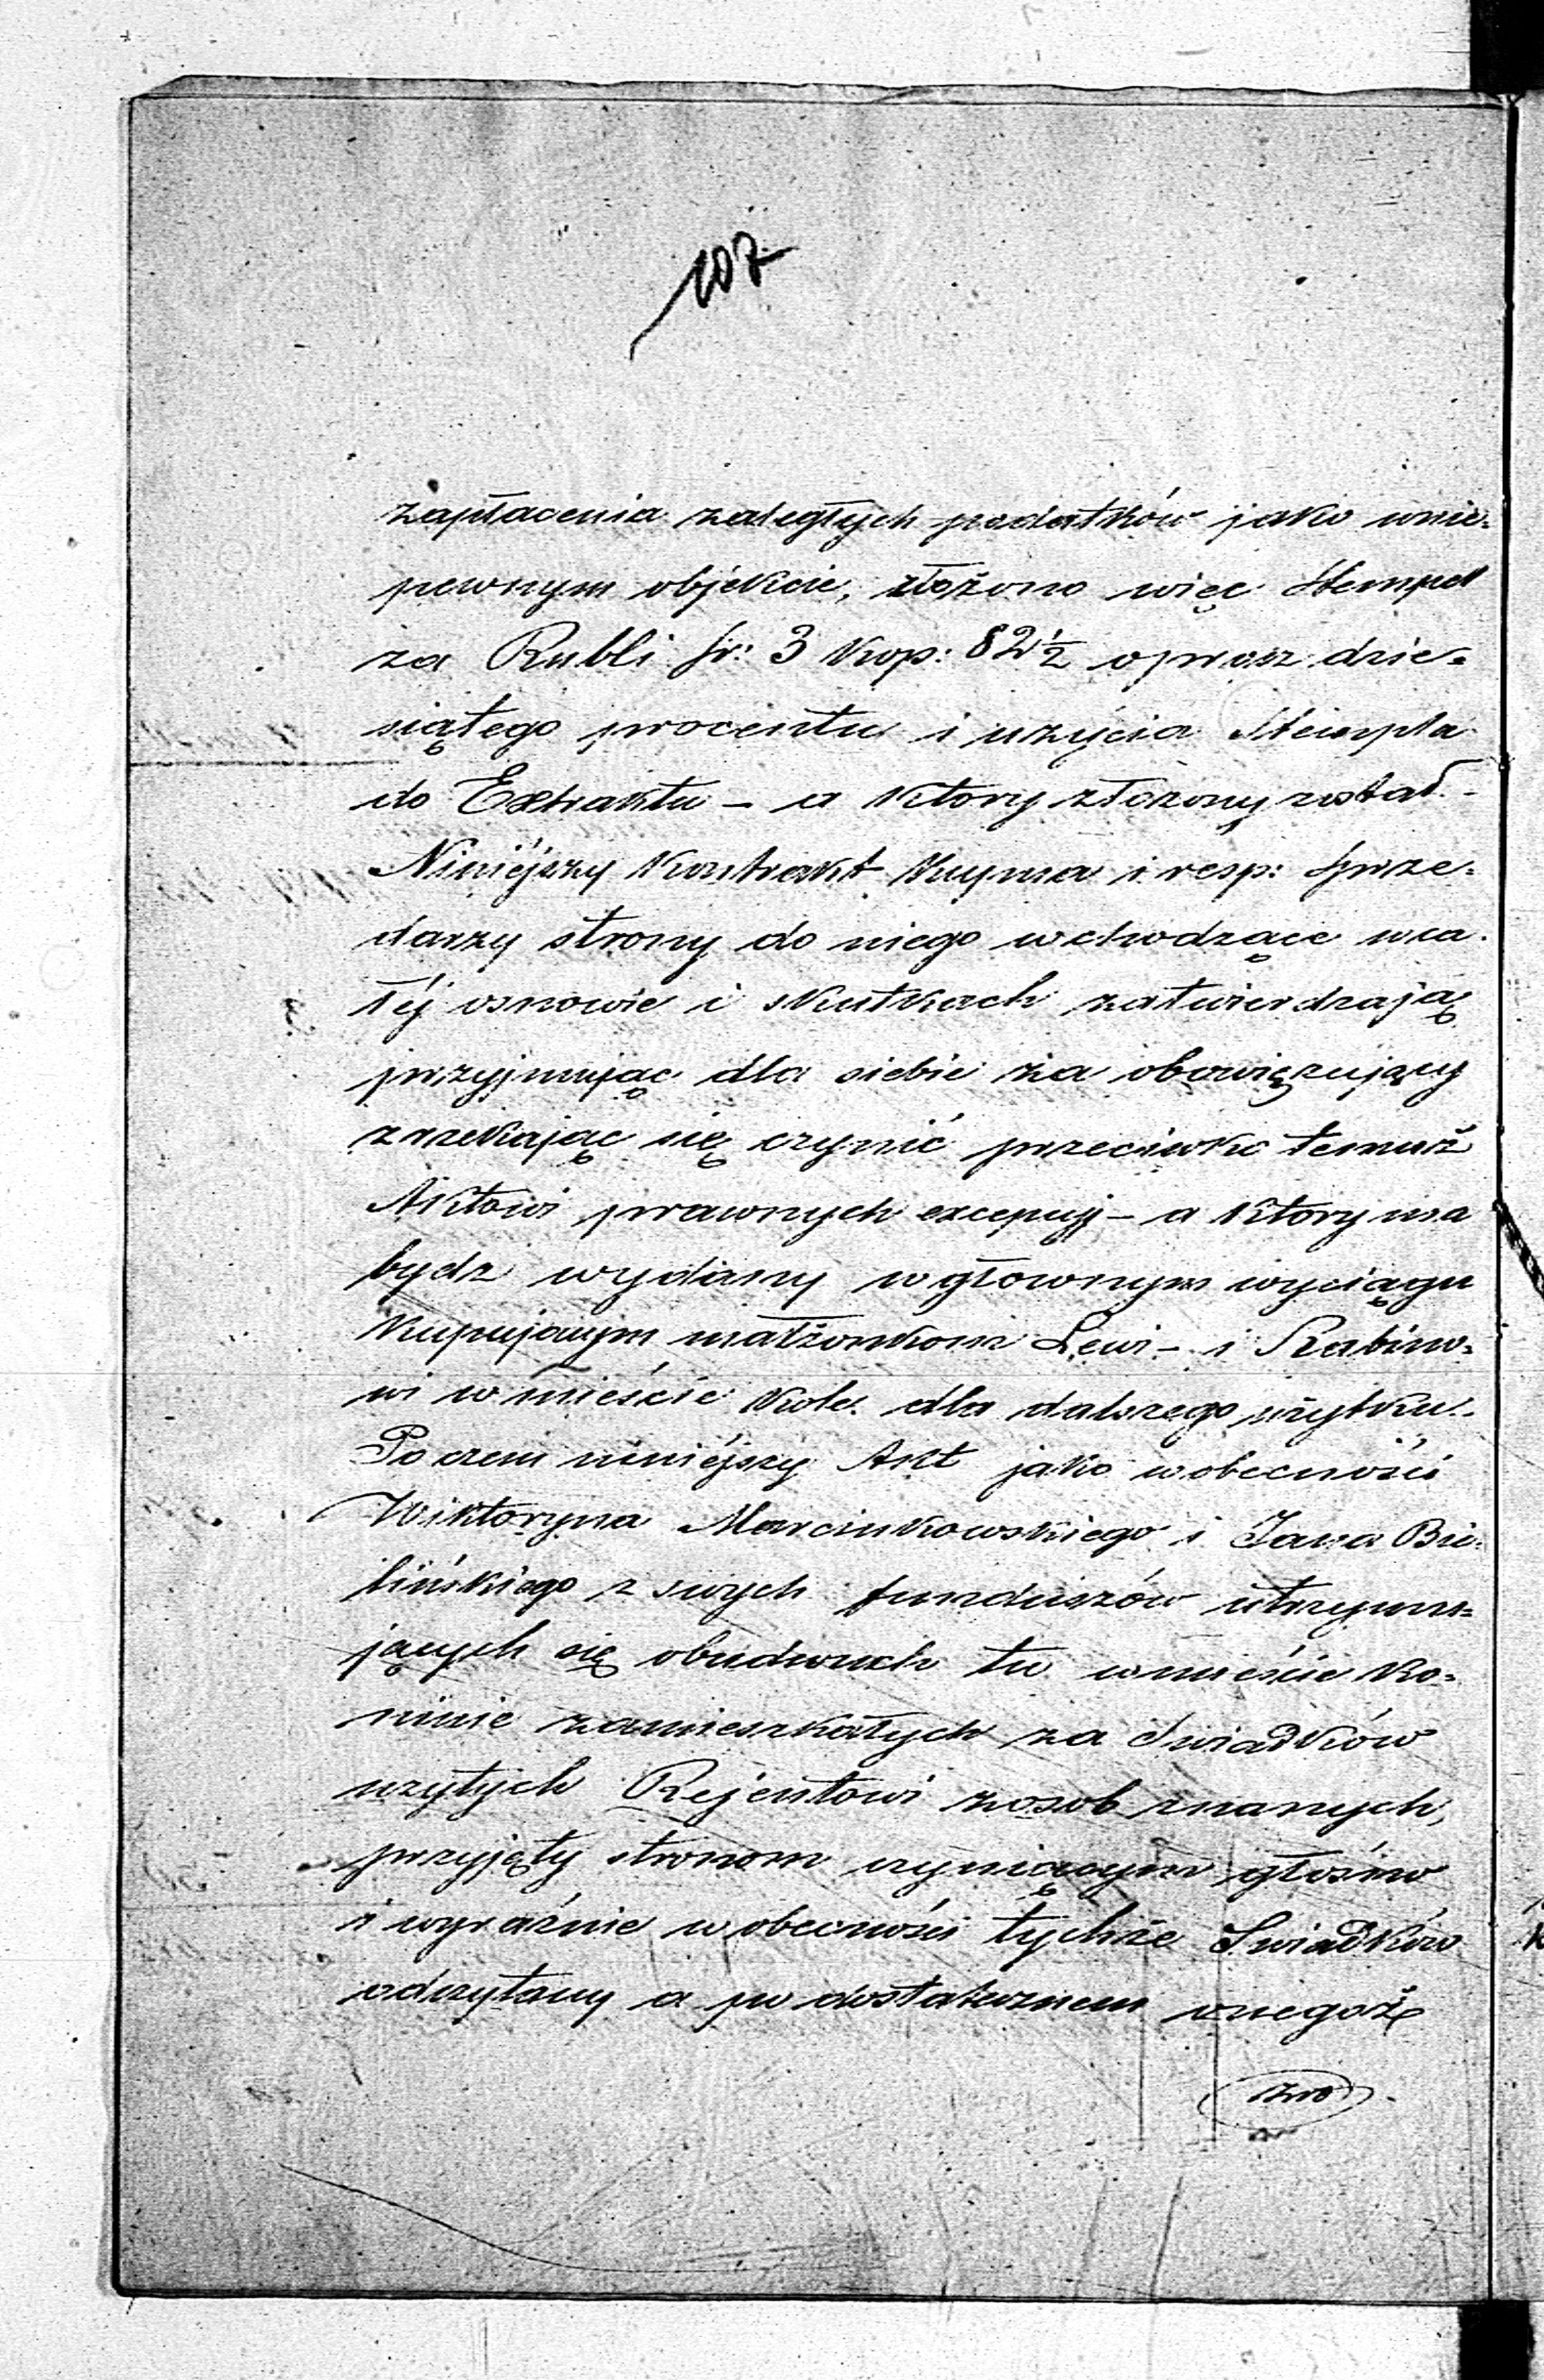 107
zapłacenia zaległych podatków jako wnie=
pewnym objekcie, złożono więc Stempel
za Rubli sr: 3 kop: 82½ oprocz dzie=
siątego procentu i uzycia Stempla
do Extraktu – a ktory złożony został. –
Niniéjszy Kontrakt Kupna i resp: sprze=
darzy strony do niego wchodzące wca=
łéj osnowie i skutkach zatwierdzają
przyjmując dla siebie za obowięzujący
zrzekając się czynić przeciwko temuż
Aktowi prawnych excepcyj – a ktory ma
bydz wydany wgłownym wyciągu
Kupującym małżonkom Lewi – i Rabino=
wi w mieście Kole dla dalszego użytku.
Po czem niniéjszy Akt jako wobecności
Wiktoryna Marcinkowskiego i Jana Bie=
lińskiego z swych funduszów utrzymu=
jących się obudwuch tu wmieście Ko=
ninie zamieszkałych za Swiadków
użytych Rejentowi zosob znanych,
przyjęty stronom czyniącym głośno
i wyraźnie wobecności tychże Swiadków
odczytany a po dostatecznem onegoż
zro